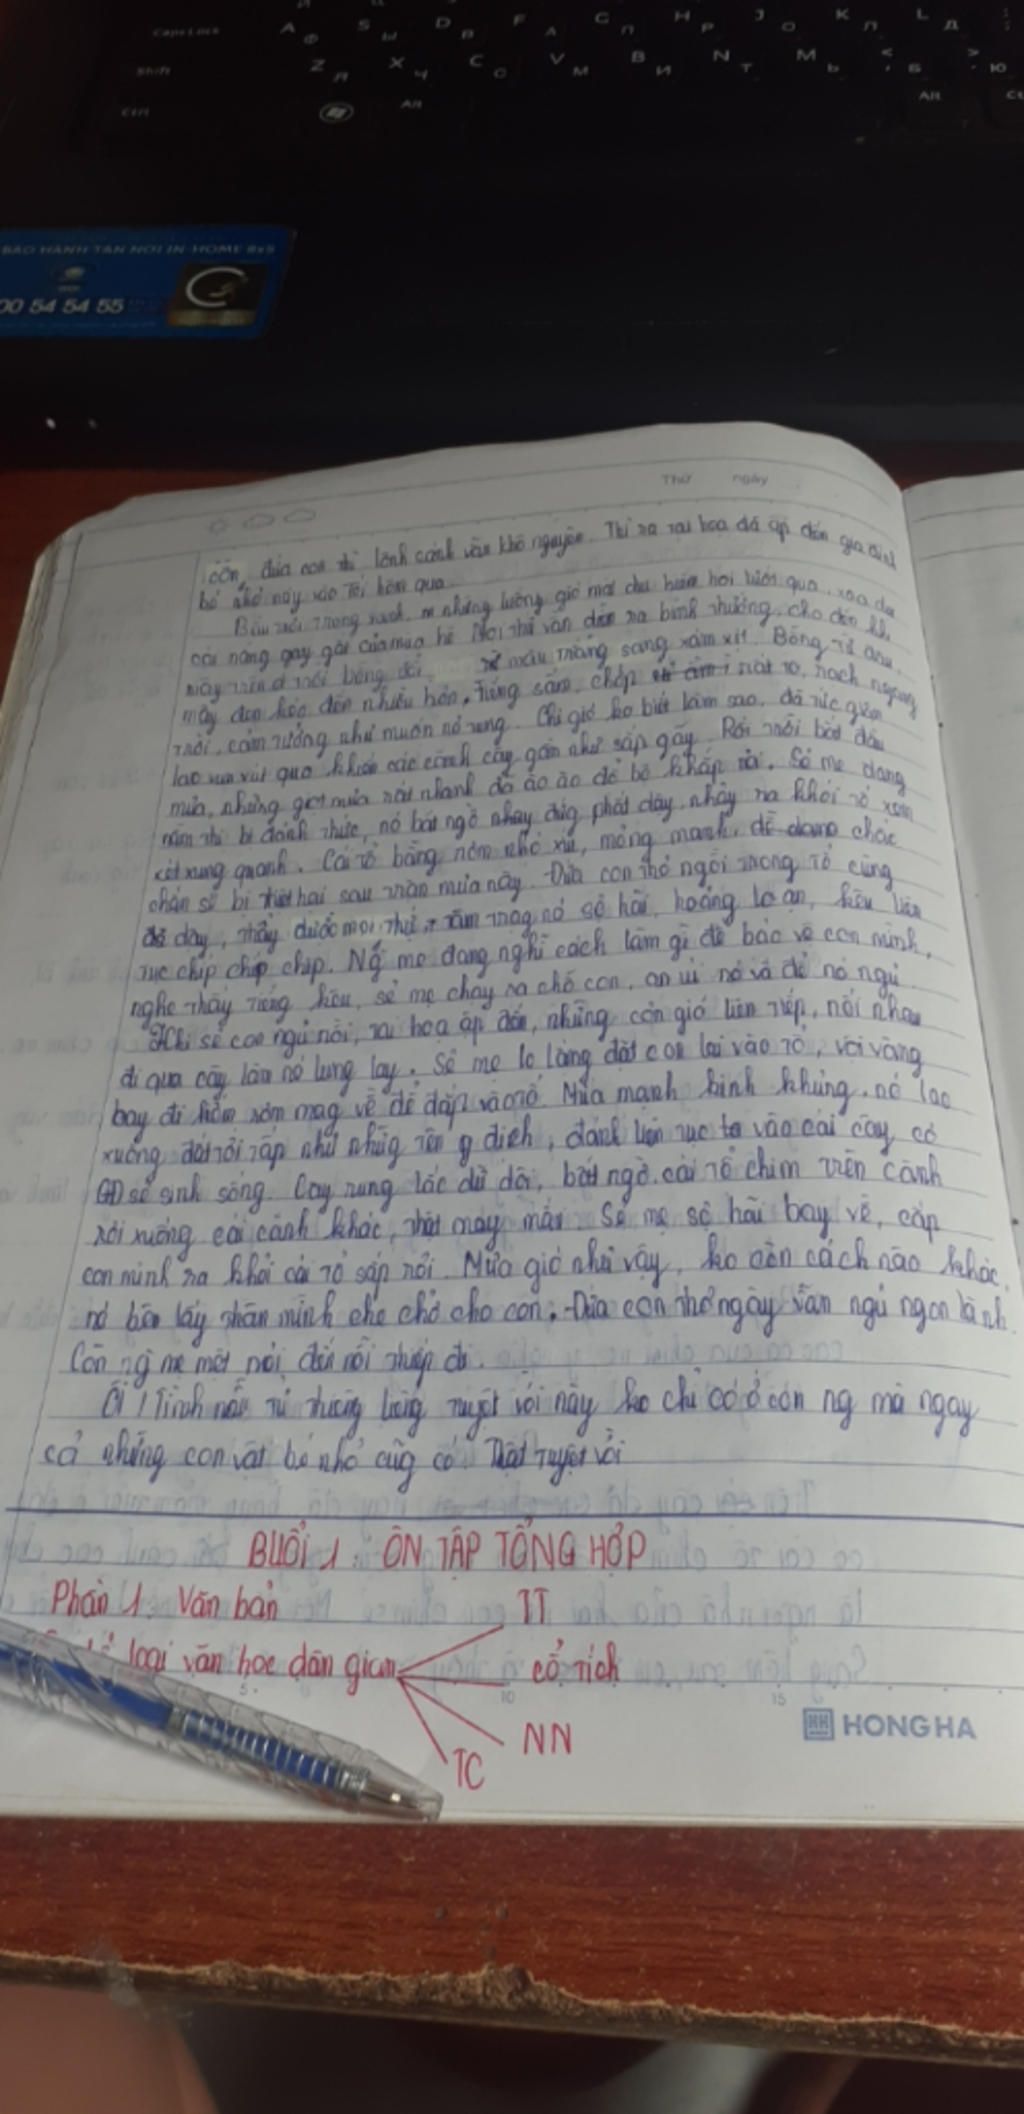 Caps Lock A Ф S Ы D В F А G П H Р J О K Л L Д
Shift Z Я X Ч C С V М B И N Т M Ь Б Ю
Ctrl Alt Alt
BẢO HÀNH TẬN NƠI IN-HOME 8x5
00 54 54 55
Thứ ngày
còn, đứa con thì lành vẫn khô nguyên. Thì ra tai hoạ đã ập đến gia đình
bé nhỏ này vào tối hôm qua.
Bầu trời trong xanh, những luồng gió mát hơi lướt qua, xoa dịu
cái nắng gay gắt của mùa hè. Mọi thứ vẫn diễn ra bình thường, cho đến khi
mây trời bỗng đổi, từ màu trắng sang xám xịt. Bỗng từ đâu,
mây đen kéo đến nhiều hơn, tiếng sấm, chớp rạch ngang
trời, cảm tưởng như muốn nổ tung. Chị gió ko biết làm sao, đã tức giận
lao vun vút qua khiến các cành cây gần như sắp gãy. Rồi trời bắt đầu
mưa, những giọt mưa rơi nhanh đã ào ào đổ bộ khắp nơi. Sẻ mẹ đang
nằm thì bị đánh thức, nó bất ngờ nhảy đứg phắt dậy, nhảy ra khỏi tổ xem
xét xung quanh. Cái tổ bằng rơm nhỏ xíu, mỏng manh, chắc
chắn sẽ bị thiệt hại sau trận mưa này. Đứa con thơ ngồi trong tổ cũng
đã dậy, thấy được mọi thứ, nó sợ hãi, hoảng loạn, kêu liên
tục chíp chíp chíp. Ng mẹ đang nghĩ cách làm gì để bảo vệ con mình,
nghe thấy tiếng kêu, sẻ mẹ chạy ra chỗ con, an ủi nó và để nó ngủ.
Khi sẻ con ngủ rồi, tai hoạ ập đến, những cơn gió liên tiếp, nối nhau
đi qua cây làm nó lung lay. Sẻ mẹ lo lắng đặt con lại vào tổ, vội vàng
bay đi kiếm rơm mag về để đắp vào tổ. Mưa mạnh kinh khủng, nó lao
xuống đất tới tấp như nhữg tên g địch, đánh liên tục vào cái cây có
GĐ sẻ sinh sống. Cây rung lắc dữ dội, bất ngờ, cái tổ chim trên cành
rơi xuống cái cành khác, thật may mắn. Sẻ mẹ sợ hãi bay về, cắp
con mình ra khỏi cái tổ sắp rơi. Mưa gió như vậy, ko còn cách nào khác,
nó bèn lấy thân mình che chở cho con. Đứa con thơ ngây vẫn ngủ ngon lành.
Còn ng mẹ mệt mỏi, đến nỗi thiếp đi.
Ôi! Tình mẫu tử thiêng liêng tuyệt vời này ko chỉ có ở con ng mà ngay
cả những con vật bé nhỏ cũg có. Thật tuyệt vời
BUỔI 1: ÔN TẬP TỔNG HỢP
Phần 1 Văn bản
TT
loại văn học dân gian cổ tích
5 10 15
NN
TC
HONG HA